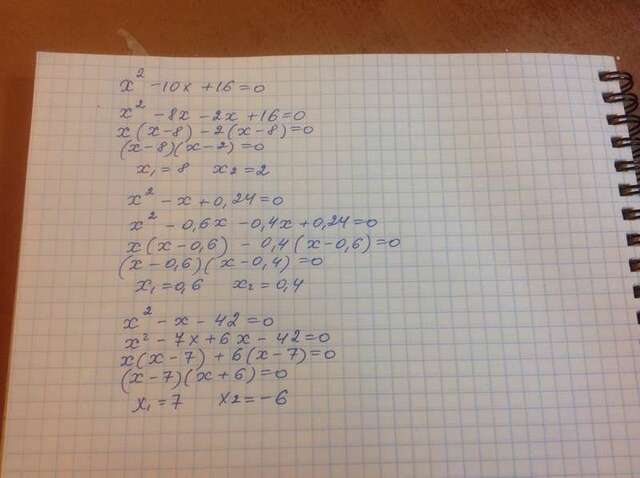 x² -10x +16=0
x² -8x -2x +16=0
x(x-8) -2(x-8)=0
(x-8)(x-2)=0
x₁=8 x₂=2
x² -x +0,24=0
x² -0,6x -0,4x +0,24=0
x(x-0,6) -0,4(x-0,6)=0
(x-0,6)(x-0,4)=0
x₁=0,6 x₂=0,4
x² -x -42=0
x² -7x +6x -42=0
x(x-7) +6(x-7)=0
(x-7)(x+6)=0
x₁=7 x₂=-6